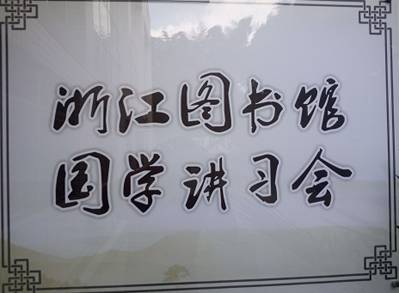 浙江图书馆
国学讲习会